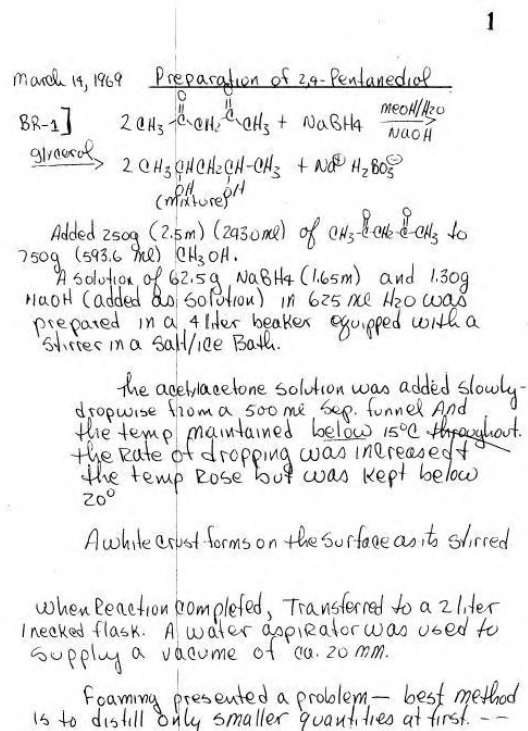 1
March 14, 1969 Preparation of 2,4-Pentanediol
BR-1] 2 CH3-C(=O)-CH2-C(=O)-CH3 + NaBH4 MeOH/H2O NaOH
glycerol → 2 CH3CHCH2CH-CH3 + Na⊕ H2BO3⊖
OH OH
(mixture)
Added 250g (2.5m) (293.0ml) of CH3-C(=O)-CH2-C(=O)-CH3 to
750g (593.6 ml) CH3OH.
A solution of 62.5g NaBH4 (1.65m) and 1.30g
NaOH (added as solution) in 625 ml H2O was
prepared in a 4 liter beaker equipped with a
stirrer in a Salt/ice Bath.
the acetylacetone solution was added slowly-
dropwise from a 500 ml Sep. funnel And
the temp maintained below 15°C throughout.
the Rate of dropping was increased &
the temp Rose but was kept below
20°
A white crust forms on the surface as its stirred
when Reaction completed, Transferred to a 2 liter
1 necked flask. A water aspirator was used to
supply a vacume of ca. 20 mm.
Foaming presented a problem— best method
is to distill only smaller quantities at first. --